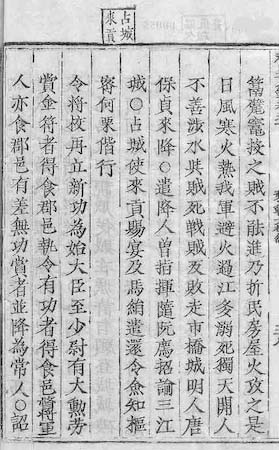 占城
來貢
賊不能進乃折民房屋火攻之是
日風寒火熱我軍避火過江多溺死獨天開人
不善涉水與賊死戰賊反敗走市橋城明人唐
保貞來降○遣降人曾指揮隨阮廌招諭三江
城○占城使來貢賜宴及馬絹遣還令魚知樞
密何栗偕行
令將校再立新功為始大臣至少尉有大勳勞
賞金符者得食郡邑執令有功者得食邑將軍
人亦食郡邑有差無功賞者並降為常人○詔